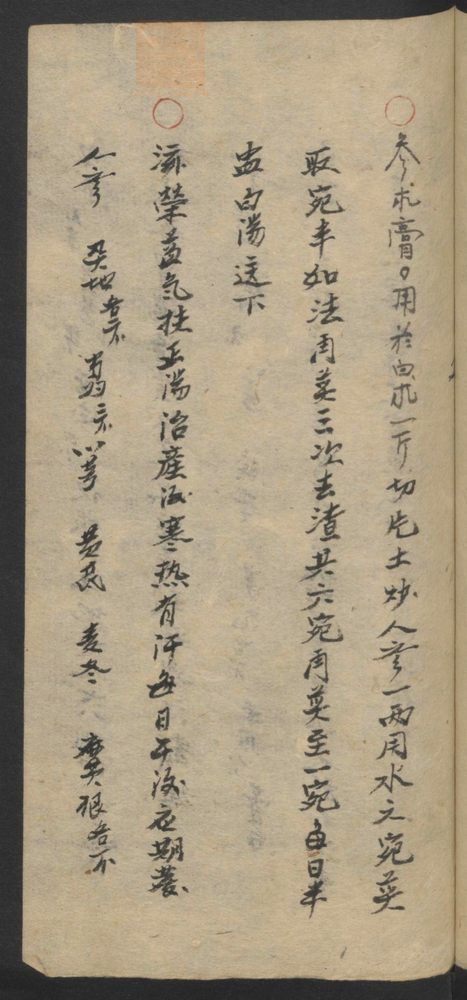 參朮膏。用於白朮一斤切片土炒人參一兩用水六宛煎
取宛半如法再煎三次去渣共六宛再煎至一宛每日半
盅白湯送下
滋榮益氣扶正湯治產後寒熱有汗每日午後應期發
人參 炙 川芎 黃芪 麥冬 麻黃根各不